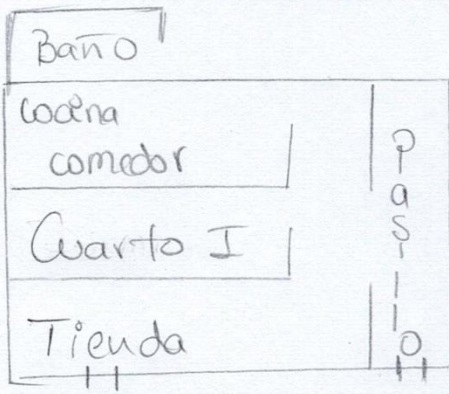 Baño
Cocina
comedor
Cuarto I
Tienda
Pasillo